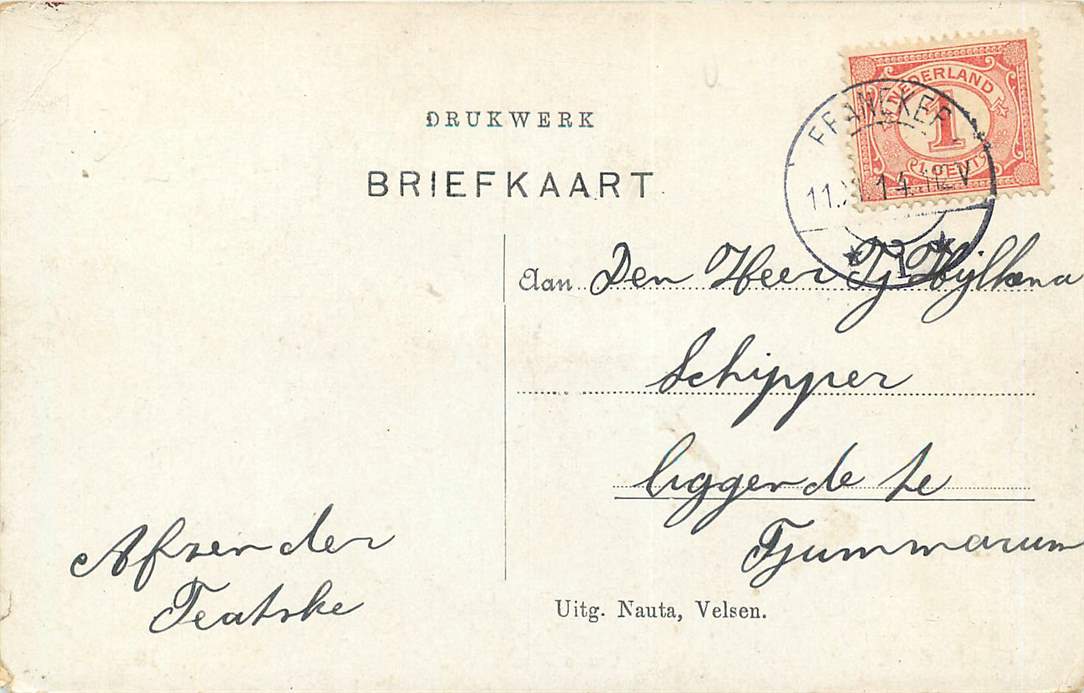 DRUKWERK
BRIEFKAART
NEDERLAND
1
FRANEKER
11. 14. V
* 1 *
Aan Den Heer Tj Hijlkema
Schipper
liggende te
Tjummarum
Afzender
Teatske
Uitg. Nauta, Velsen.